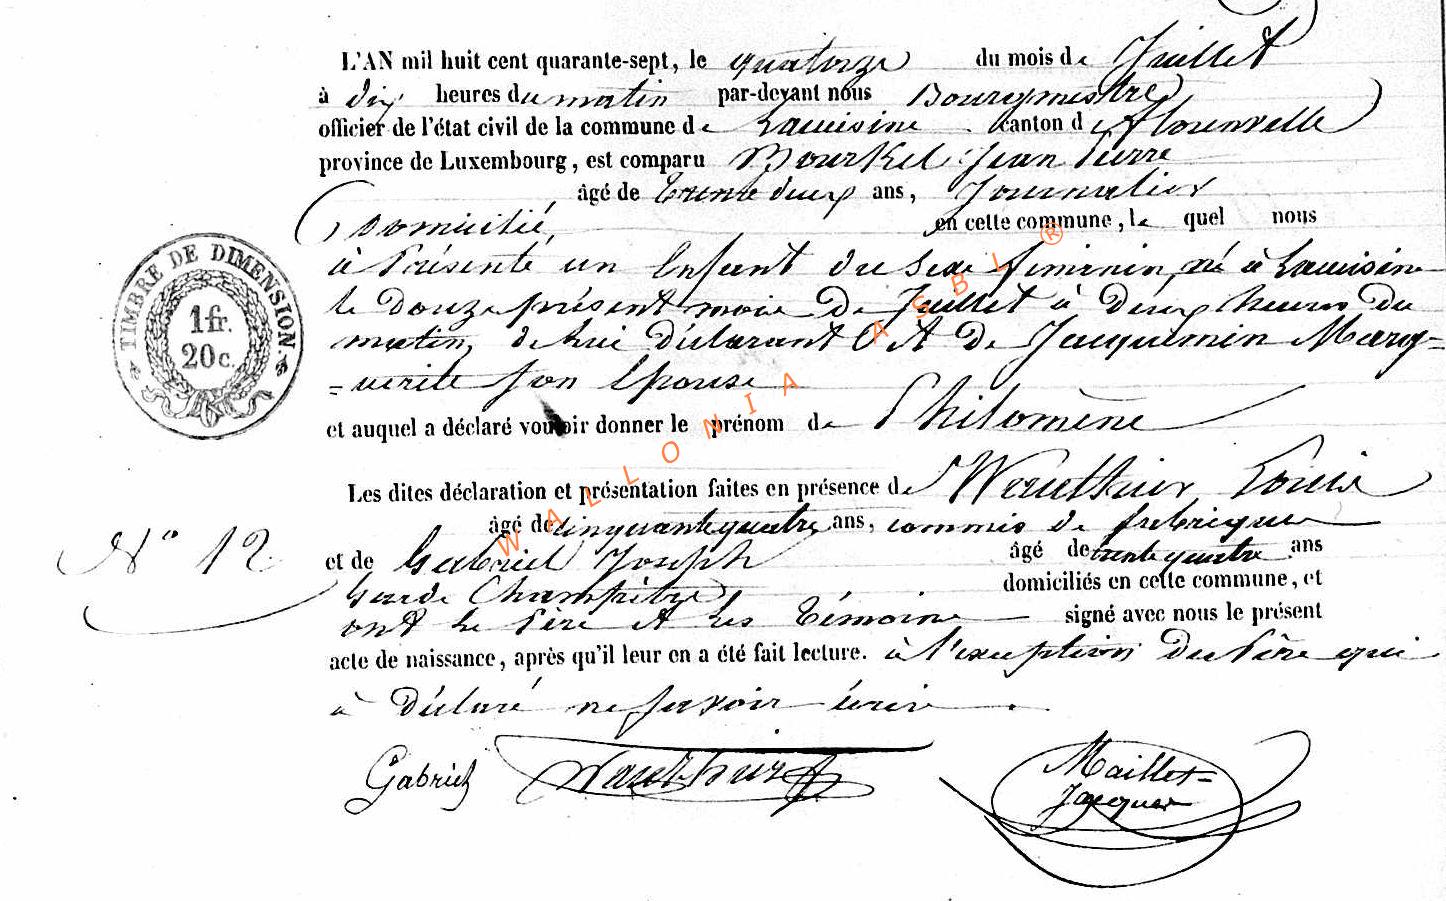 L'AN mil huit cent quarante-sept, le quatorze du mois de Juillet
à dix heures du matin par-devant nous Bourgmestre
officier de l'état civil de la commune de Lacuisine canton de florenville
province de Luxembourg, est comparu Bourkel Jean Pierre
âgé de trente deux ans, Journalier
Domicilié en cette commune, le quel nous
à Présenté un Enfant du sexe féminin, né à Lacuisine
le douze présent mois de Juillet à deux heures du
matin, de lui déclarant Et De Jacquemin Marg=
=uerite son Epouse
et auquel a déclaré vouloir donner le prénom de Philomène
Les dites déclaration et présentation faites en présence de Wauthier, Louis
âgé de cinquante quatre ans, commis de fabrique
N° 12
et de Gabriel Joseph âgé de trente quatre ans
Garde Champêtre domiciliés en cette commune, et
ont le Père et les témoins signé avec nous le présent
acte de naissance, après qu'il leur en a été fait lecture. à l'exception du Père qui
à déclaré ne savoir écrire.
Gabriel Wauthier Maillet=
Jacques
TIMBRE DE DIMENSION.
1 fr.
20 c.
WALLONIA ASBL ®